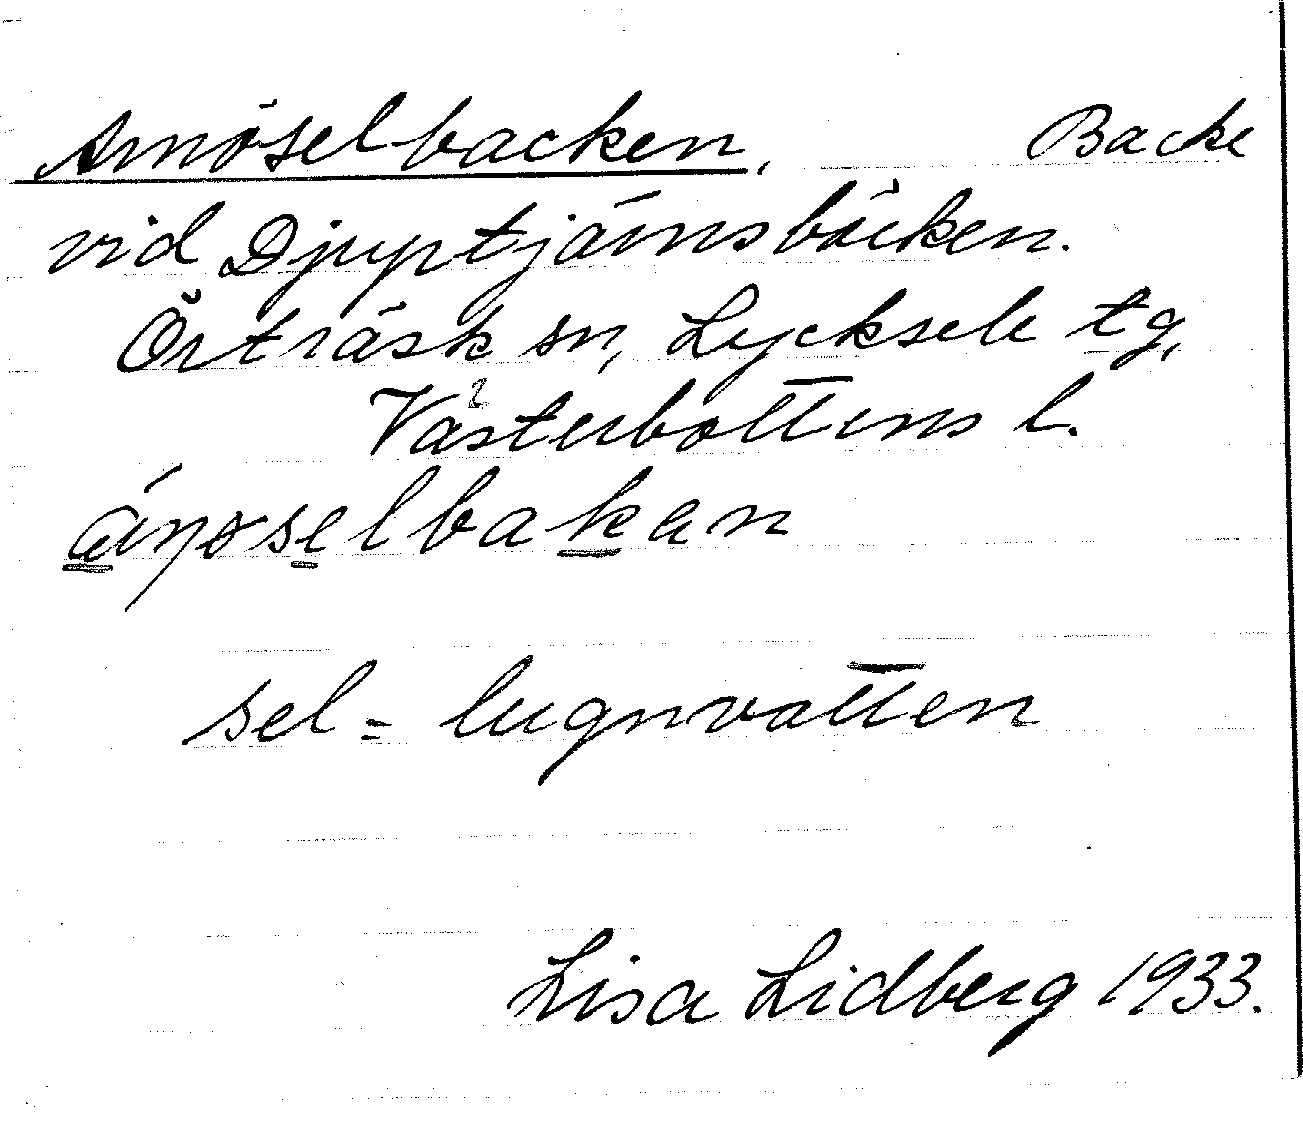 Arnöselbacken. Backe
vid Djuptjärnsbäcken.
Örträsk sn, Lycksele tg,
Västerbottens l.
sel = lugnvatten
Lisa Lidberg 1933.